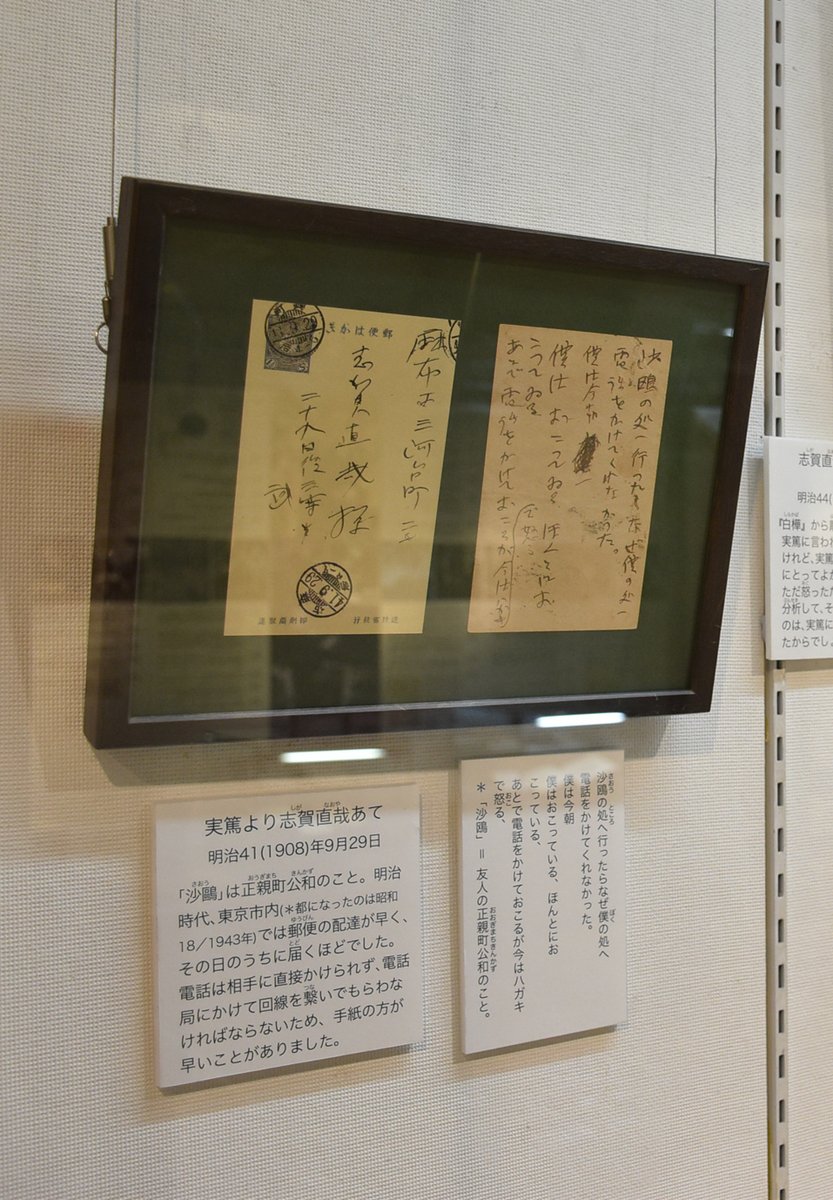 郵便はかき
麻布区三河台町二五
志賀直哉様
二十九日後三零半
武
41.9.29
逓信省発行
印刷局製造
沙鴎の処へ行つたらなぜ僕の処へ
電話をかけてくれなかつた。
僕は今朝
僕はおこつてゐる ほんとにお
こつてゐる
あとで電話をかけておこるが今はハガキ
で怒る
実篤より志賀直哉あて
明治41(1908)年9月29日
「沙鷗」は正親町公和のこと。明治
時代、東京市内(*都になったのは昭和
18/1943年)では郵便の配達が早く、
その日のうちに届くほどでした。
電話は相手に直接かけられず、電話
局にかけて回線を繋いでもらわな
ければならないため、手紙の方が
早いことがありました。
沙鷗の処へ行ったらなぜ僕の処へ
電話をかけてくれなかった。
僕は今朝
僕はおこっている、ほんとにお
こっている、
あとで電話をかけておこるが今はハガキ
で怒る、
*「沙鷗」=友人の正親町公和のこと。
志賀直
明治44(
『白樺』から
実篤に言われ
けれど、実篤
にとってよか
ただ怒っただ
分析して、そ
のは、実篤に
たからでしょ